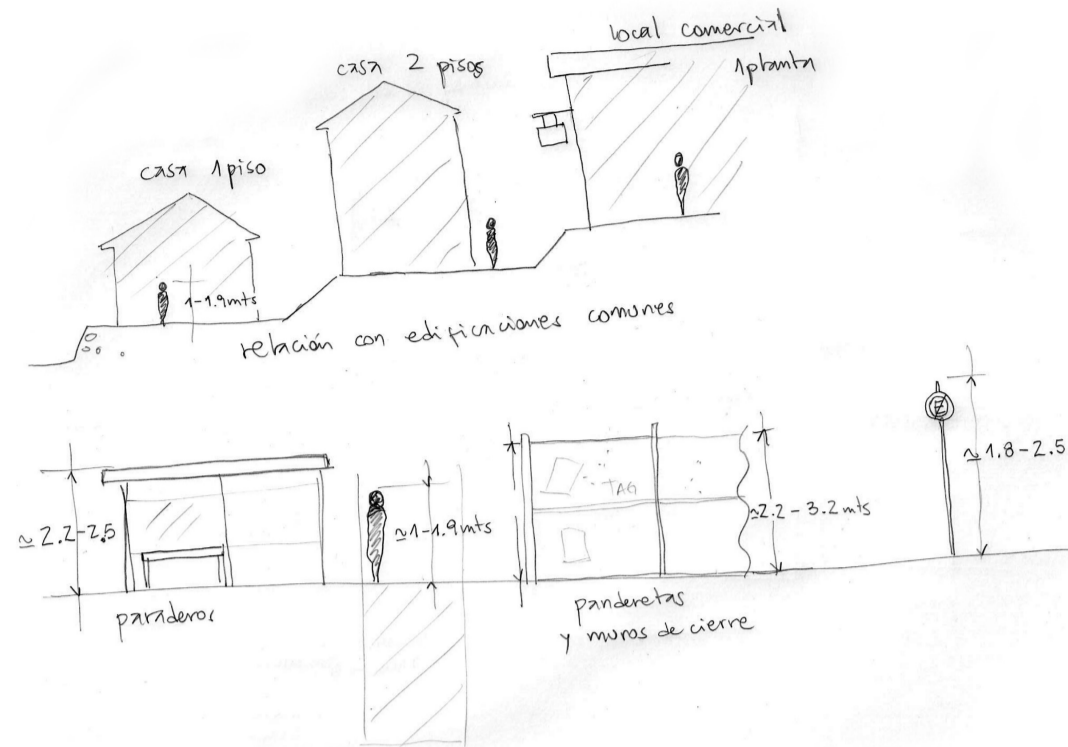 local comercial
1 planta
casa 2 pisos
casa 1 piso
1-1.9mts
relación con edificaciones comunes
≃ 1.8-2.5
≃ 2.2-2.5
≃1-1.9mts
TAG
≃2.2-3.2mts
E
paraderos
panderetas
y muros de cierre